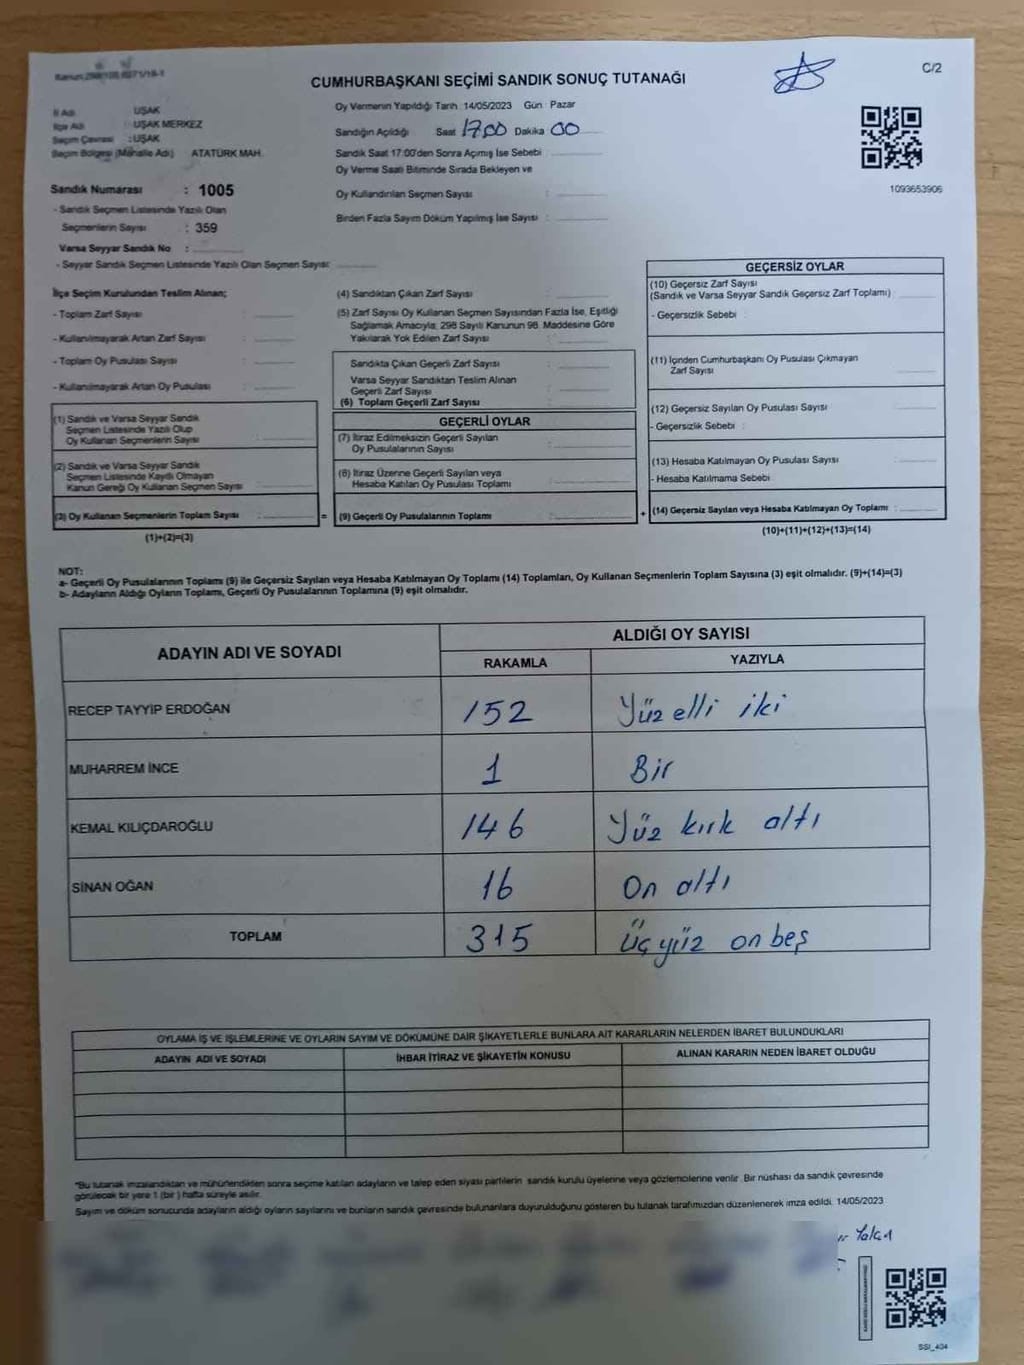 CUMHURBAŞKANI SEÇİMİ SANDIK SONUÇ TUTANAĞI
C/2
İl Adı : UŞAK
İlçe Adı : UŞAK MERKEZ
Seçim Çevresi : UŞAK
Seçim Bölgesi (Mahalle Adı) ATATÜRK MAH.
Oy Vermenin Yapıldığı Tarih 14/05/2023 Gün : Pazar
Sandığın Açıldığı Saat 17.00 Dakika 00
Sandık Saat 17:00'den Sonra Açmış İse Sebebi :
Oy Verme Saati Bitiminde Sırada Bekleyen ve
Oy Kullandırılan Seçmen Sayısı :
Birden Fazla Sayım Döküm Yapılmış İse Sayısı :
1093653906
Sandık Numarası : 1005
- Sandık Seçmen Listesinde Yazılı Olan
Seçmenlerin Sayısı : 359
Varsa Seyyar Sandık No :
- Seyyar Sandık Seçmen Listesinde Yazılı Olan Seçmen Sayısı:
İlçe Seçim Kurulundan Teslim Alınan;
- Toplam Zarf Sayısı :
- Kullanılmayarak Artan Zarf Sayısı :
- Toplam Oy Pusulası Sayısı :
- Kullanılmayarak Artan Oy Pusulası :
(1) Sandık ve Varsa Seyyar Sandık
Seçmen Listesinde Yazılı Olup
Oy Kullanan Seçmenlerin Sayısı :
(2) Sandık ve Varsa Seyyar Sandık
Seçmen Listesinde Kayıtlı Olmayan
Kanun Gereği Oy Kullanan Seçmen Sayısı :
(3) Oy Kullanan Seçmenlerin Toplam Sayısı :
(1)+(2)=(3)
=
(4) Sandıktan Çıkan Zarf Sayısı :
(5) Zarf Sayısı Oy Kullanan Seçmen Sayısından Fazla İse, Eşitliği
Sağlamak Amacıyla, 298 Sayılı Kanunun 98. Maddesine Göre
Yakılarak Yok Edilen Zarf Sayısı :
Sandıkta Çıkan Geçerli Zarf Sayısı :
Varsa Seyyar Sandıktan Teslim Alınan
Geçerli Zarf Sayısı :
(6) Toplam Geçerli Zarf Sayısı :
GEÇERLİ OYLAR
(7) İtiraz Edilmeksizin Geçerli Sayılan
Oy Pusulalarının Sayısı :
(8) İtiraz Üzerine Geçerli Sayılan veya
Hesaba Katılan Oy Pusulası Toplamı :
(9) Geçerli Oy Pusulalarının Toplamı :
+
GEÇERSİZ OYLAR
(10) Geçersiz Zarf Sayısı
(Sandık ve Varsa Seyyar Sandık Geçersiz Zarf Toplamı) :
- Geçersizlik Sebebi :
(11) İçinden Cumhurbaşkanı Oy Pusulası Çıkmayan
Zarf Sayısı :
(12) Geçersiz Sayılan Oy Pusulası Sayısı :
- Geçersizlik Sebebi :
(13) Hesaba Katılmayan Oy Pusulası Sayısı :
- Hesaba Katılmama Sebebi :
(14) Geçersiz Sayılan veya Hesaba Katılmayan Oy Toplamı :
(10)+(11)+(12)+(13)=(14)
NOT:
a- Geçerli Oy Pusulalarının Toplamı (9) ile Geçersiz Sayılan veya Hesaba Katılmayan Oy Toplamı (14) Toplamları, Oy Kullanan Seçmenlerin Toplam Sayısına (3) eşit olmalıdır. (9)+(14)=(3)
b- Adayların Aldığı Oyların Toplamı, Geçerli Oy Pusulalarının Toplamına (9) eşit olmalıdır.
ADAYIN ADI VE SOYADI
ALDIĞI OY SAYISI
RAKAMLA YAZIYLA
RECEP TAYYİP ERDOĞAN 152 Yüz elli iki
MUHARREM İNCE 1 Bir
KEMAL KILIÇDAROĞLU 146 Yüz kırk altı
SİNAN OĞAN 16 On altı
TOPLAM 315 Üç yüz on beş
OYLAMA İŞ VE İŞLEMLERİNE VE OYLARIN SAYIM VE DÖKÜMÜNE DAİR ŞİKAYETLERLE BUNLARA AİT KARARLARIN NELERDEN İBARET BULUNDUKLARI
ADAYIN ADI VE SOYADI İHBAR İTİRAZ VE ŞİKAYETİN KONUSU ALINAN KARARIN NEDEN İBARET OLDUĞU
*Bu tutanak imzalandıktan ve mühürlendikten sonra seçime katılan adayların ve talep eden siyasi partilerin sandık kurulu üyelerine veya gözlemcilerine verilir. Bir nüshası da sandık çevresinde
görülecek bir yere 1 (bir) hafta süreyle asılır.
Sayım ve döküm sonucunda adayların aldığı oyların sayılarını ve bunların sandık çevresinde bulunanlara duyurulduğunu gösteren bu tutanak tarafımızdan düzenlenerek imza edildi. 14/05/2023
SSI_404